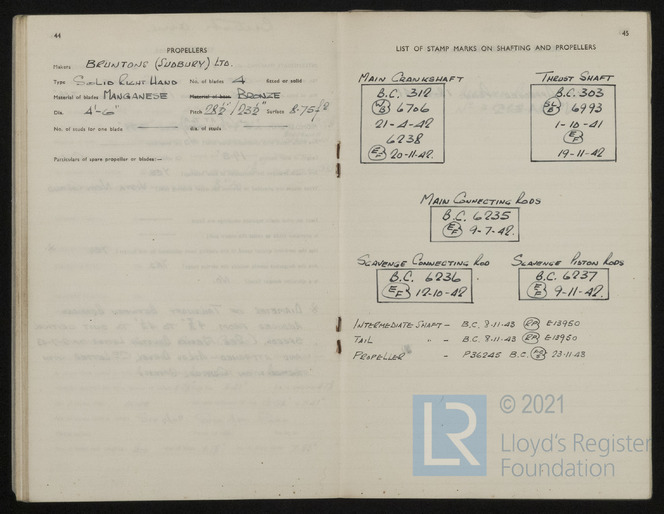 44
PROPELLERS
Makers BRUNTONS (SUDBURY) LTD.
Type SOLID RIGHT HAND No. of blades 4 fitted or solid
Material of blades MANGANESE Material of boss BRONZE
Dia. 4'-6" Pitch 28½"/23½" Surface 8.75
No. of studs for one blade dia. of studs
Particulars of spare propeller or blades:—
45
LIST OF STAMP MARKS ON SHAFTING AND PROPELLERS
MAIN CRANKSHAFT
B.C. 312
6706
21-4-42
6238
EF 20-11-42.
THRUST SHAFT
B.C. 303
6993
1-10-41
EF
19-11-42
MAIN CONNECTING RODS
B.C. 6235
EF 9-7-42.
SCAVENGE CONNECTING ROD
B.C. 6236
EF 12-10-42
SCAVENGE PISTON RODS
B.C. 6237
EF 9-11-42.
INTERMEDIATE SHAFT – B.C. 8-11-43 RP E13950
TAIL " – B.C. 8-11-43 RP E13950
PROPELLER – P36245 B.C. 23-11-43
LR
© 2021
Lloyd's Register
Foundation